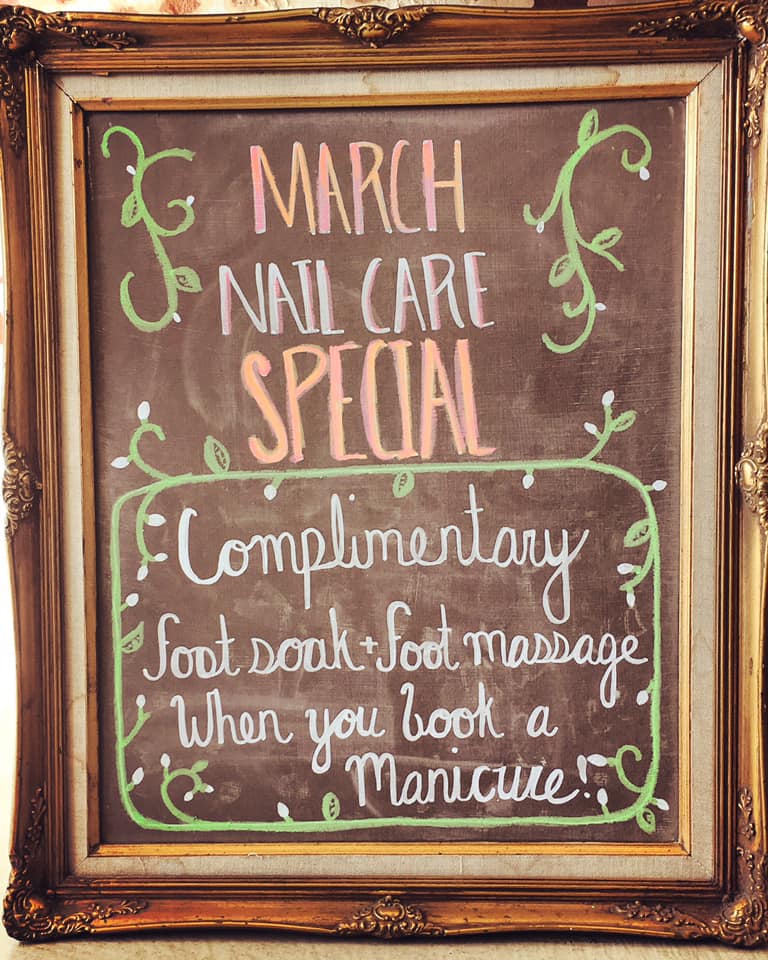 MARCH
NAIL CARE
SPECIAL
Complimentary
foot soak + foot massage
When you book a
Manicure!